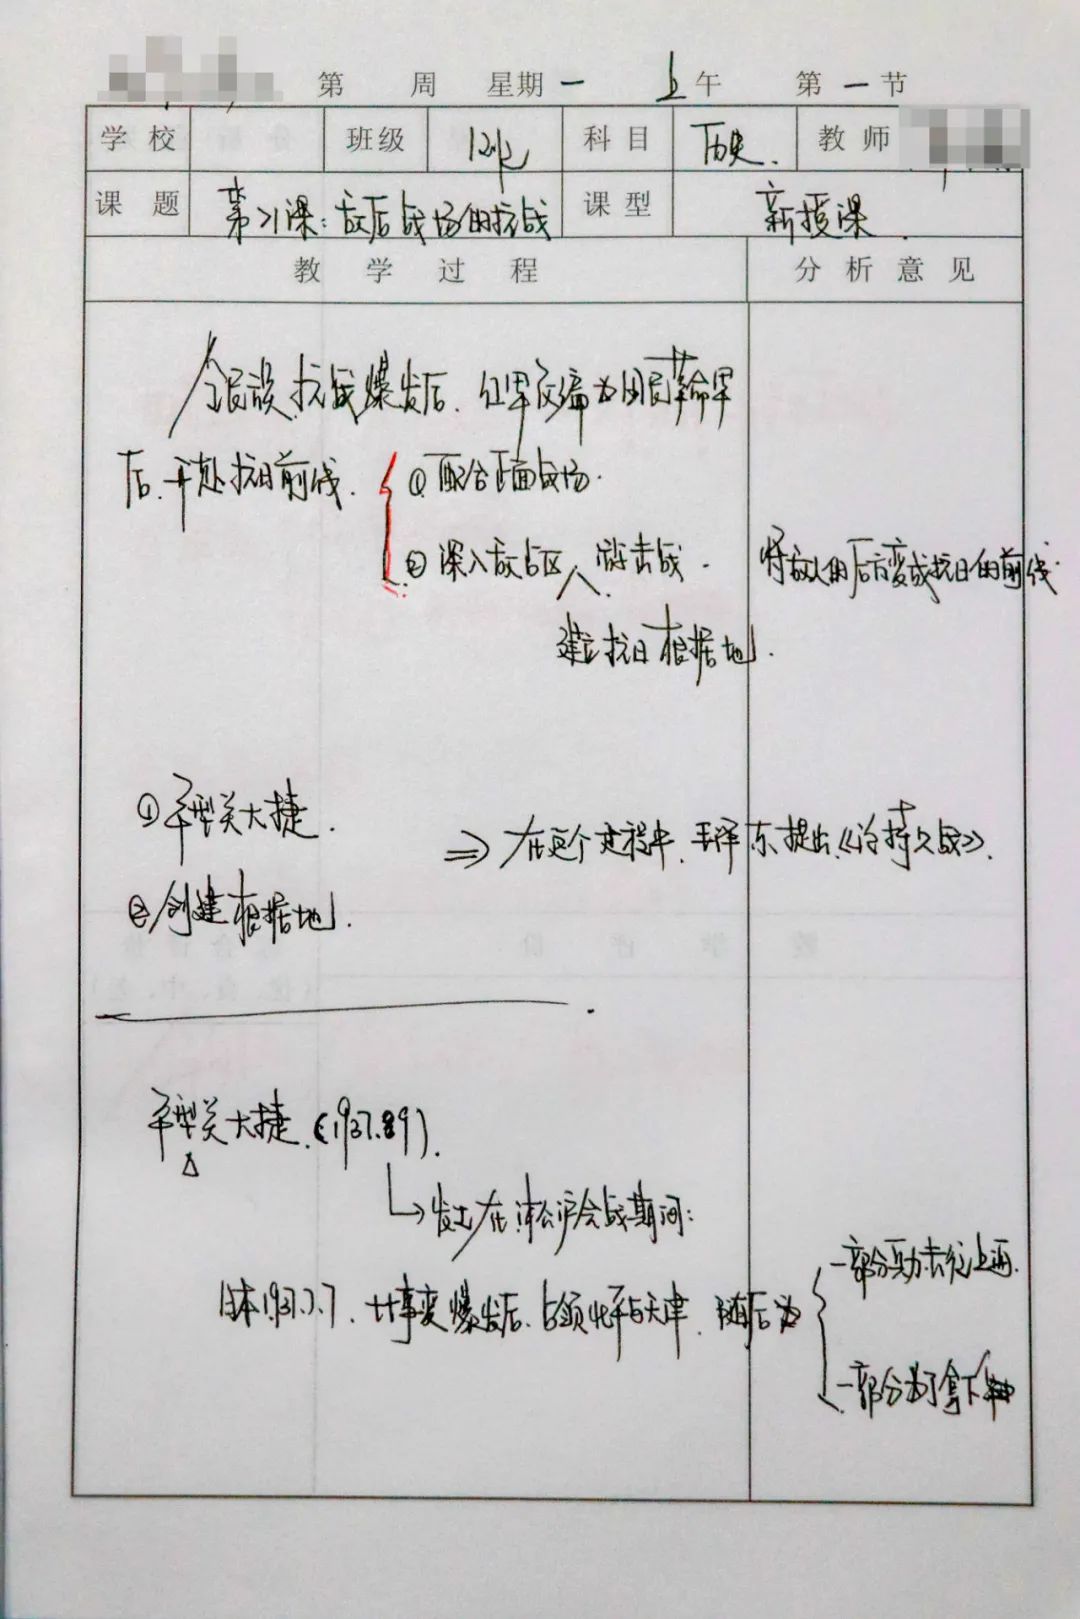 第 周 星期一 上午 第一节
学校 班级 科目 历史. 教师
课题 第21课:敌后战场的抗战 课型 新授课.
教学过程 分析意见
全民族抗战爆发后.红军改编为国民革命军
后.开赴抗日前线. ①配合正面战场.
②深入敌占区 游击战. 将敌人的后方变成抗日的前线.
建立抗日根据地.
①平型关大捷.
⇒在这个过程中.毛泽东提出《论持久战》.
②创建根据地.
平型关大捷.(1937.89).
↳发生在淞沪会战期间:
一部分兵力去往上海.
日本1937.7.7.七七事变爆发后.占领北平与天津.随后为
一部分为了拿下